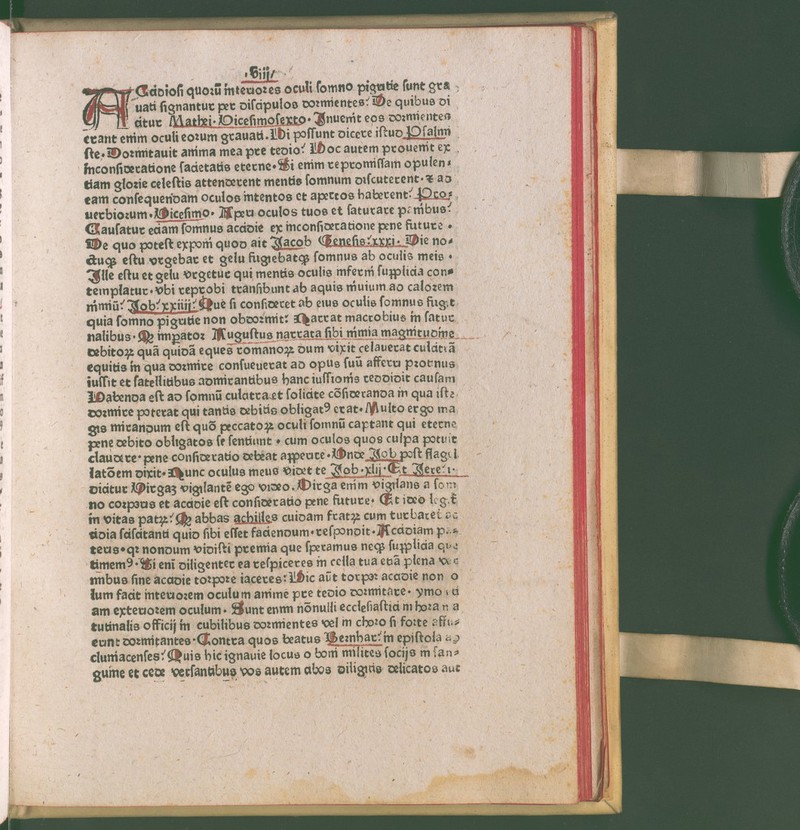 ·Viij·
ACcidiosi quorū interiores oculi somno pigritie sunt gra
uati signantur per discipulos dormientes: De quibus di
citur Mathei· Vicesimosexto· Inuenit eos dormientes
erant enim oculi eorum grauati. Hi possunt dicere istud Psalmi
ste· Dormitauit anima mea pre tedio: Hoc autem prouenit ex
inconsideratione sacietatis eterne· Si enim repromissam opulen-
tiam glorie celestis attenderent mentis somnum discuterent· ⁊ ad
eam consequendam oculos intentos et apertos haberent: Pro-
uerbiorum· Vicesimo· Aperi oculos tuos et saturare panibus:
Causatur eciam somnus accidie ex inconsideratione pene future·
De quo potest exponi quod ait Jacob Genesis: xxxi· Die no-
ctuqꝫ estu vrgebar et gelu fugiebatqꝫ somnus ab oculis meis·
Ille estu et gelu vrgetur qui mentis oculis inferni supplicia con-
templatur· vbi reprobi transibunt ab aquis niuium ad calorem
nimiū: Job: xxiiij: Que si consideret ab eius oculis somnus fugit
quia somno pigritie non obdormit: Narrat macrobius in satur
nalibus· Ꝙ imperator Augustus narrata sibi nimia magnitudine
debitoꝝ quā quidā eques romanoꝝ dum vixit celauerat culcitrā
equitis in qua dormire consueuerat ad opus suū afferri protinus
iussit et satellitibus admirantibus hanc iussionis reddidit causam
Habenda est ad somnū culcitra et solicite cōsideranda in qua iste
dormire poterat qui tantis debitis obligatꝰ erat· Multo ergo ma
gis mirandum est quō peccatoꝝ oculi somnū captant qui eterne
pene debito obligatos se sentiunt· cum oculos quos culpa potuit
claudere· pene consideratio debeat apperire· Unde Job post flagel
latōem dixit· Nunc oculus meus videt te Job· xlij· Et Jere· i·
dicitur Virgaꝫ vigilantē ego video. Virga enim vigilans a som
no corporis et accidie est consideratio pene future· Et ideo legit̄
in vitas patꝝ: Ꝙ abbas achilles cuidam fratꝝ cum turbaret ac
cidia sciscitanti quid sibi esset faciendum· respondit· Accidiam pa-
teris· qꝛ nondum vidisti premia que speramus neqꝫ supplicia que
timemꝰ· Si eni diligenter ea respiceres in cella tua etiā plena ver
mibus sine accidie torpore iaceres: Hic aūt torpor accidie non so
lum facit interiorem oculum anime pre tedio dormitare· ymo eti
am exteriorem oculum· Sunt enim nōnulli ecclesiastici in hora ma
tutinalis officij in cubilibus dormientes vel in choro si forte affu-
erint dormitantes· Contra quos beatus Bernhar: in epistola ad
cluniacenses: Quis hic ignauie locus o boni milites socijs in san-
guine et cede versantibus vos autem cibos diligitis delicatos aut